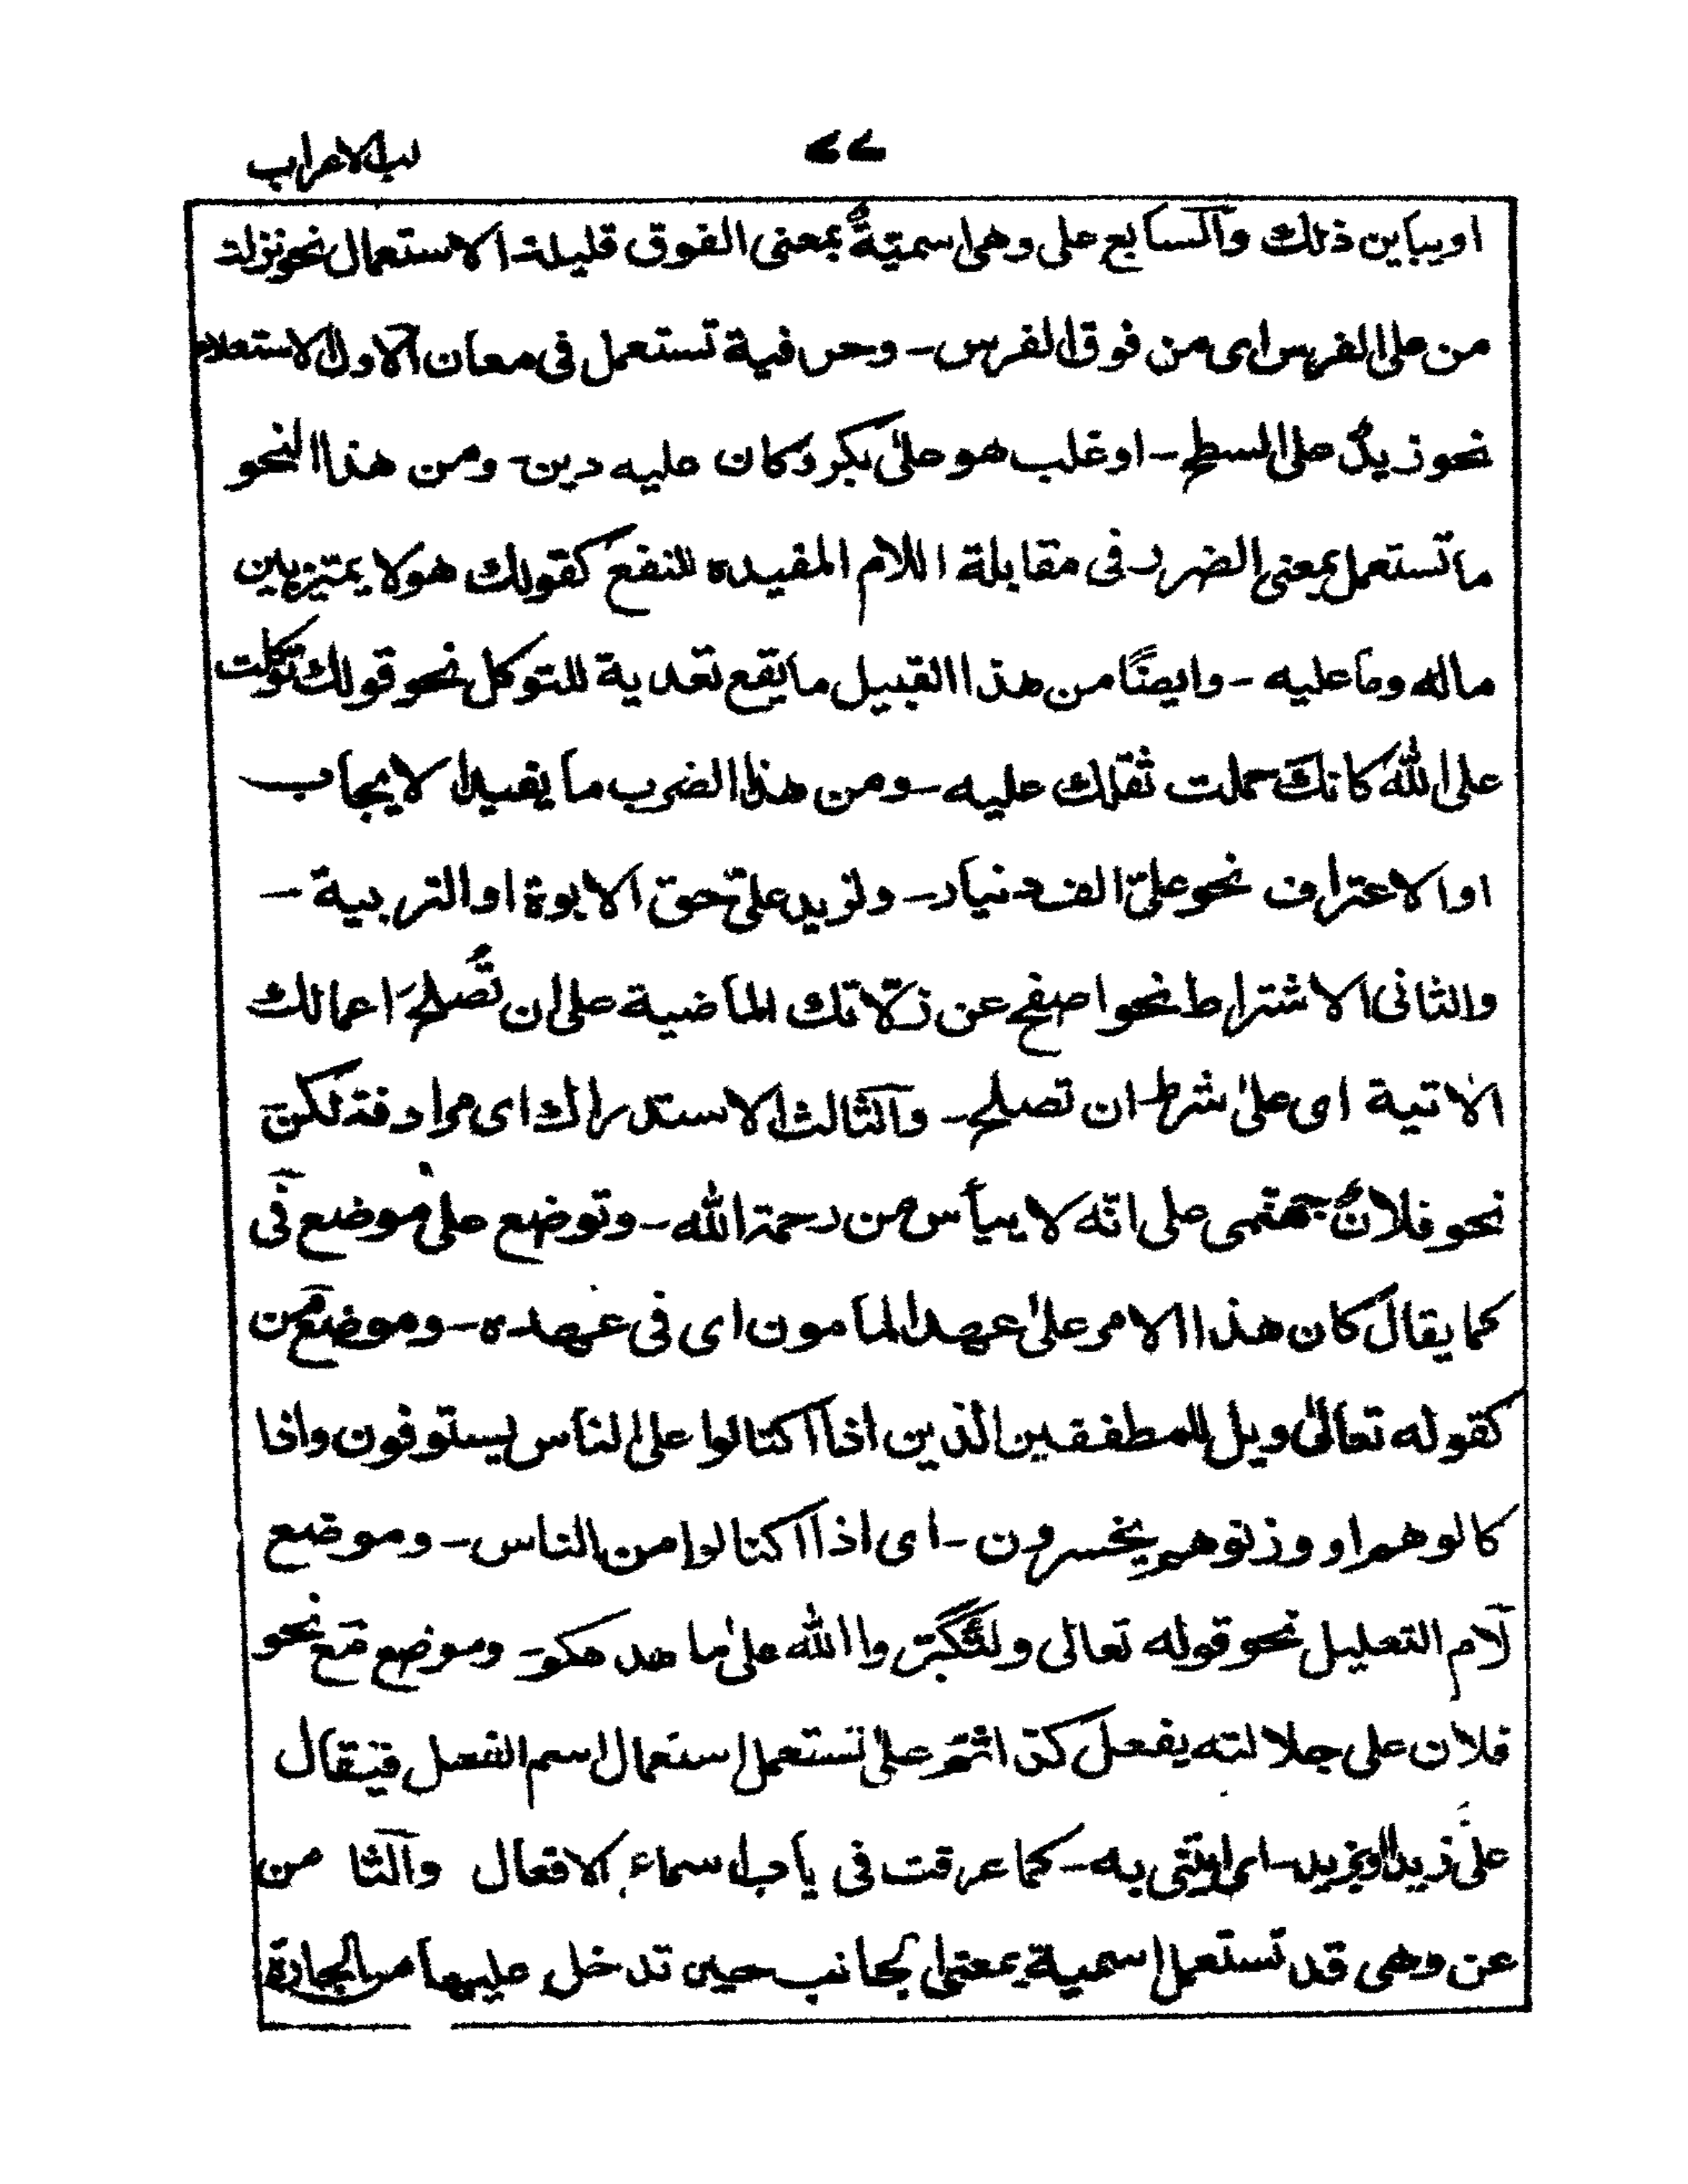 لب الاعراب
۷۷
او يباين ذلك والسابع على وهى اسميّةٌ بمعنى الفوق قليلة الاستعمال نحو نزلت
من على الفرس اى من فوق الفرس - وحرفية تستعمل فى معان الاول الاستعلاء
نحو زيدٌ على السطح - او غلب هو على بكر وكان عليه دين - ومن هذا النحو
ما تستعمل بمعنى الضرر فى مقابلة اللام المفيده للنفع كقولك هو لا يميز بين
ماله وما عليه - وايضًا من هذا القبيل ما يقع تعدية للتوكل نحو قولك توكلت
على الله كانك حملت ثقلك عليه - ومن هذا الضرب ما يفيد الايجاب
او الاعتراف نحو علىّ الف دنيار - ولزيد علىّ حق الابوة او التربية -
والثانى الاشتراط نحو اصفح عن زلّاتك الماضية على ان تُصلحَ اعمالك
الاتية اى على شرط ان تصلح - والثالث الاستدراك اى مرادفة لكنّ
نحو فلانٌ جهنمى على انّه لا ييأس من رحمة الله - وتوضع على موضع فى
كما يقال كان هذا الامر على عهد المامون اى فى عهده - وموضع من
كقوله تعالى ويل للمطففين الذين اذا اكتالوا على الناس يستوفون واذا
كالوهم او وزنوهم يخسرون - اى اذا اكتالوا من الناس - وموضع
لام التعليل نحو قوله تعالى ولتكبّروا الله على ما هدىكم - وموضع مع نحو
فلان على جلالته يفعل كذا ثم على تستعمل استعمال اسم الفعل فيقال
علىَّ زيدا او بزيد - اى ايتنى به - كما عرفت فى باب اسماء الافعال والثا من
عن وهى قد تستعمل اسمية بمعنى الجانب حين تدخل عليها من الجارة